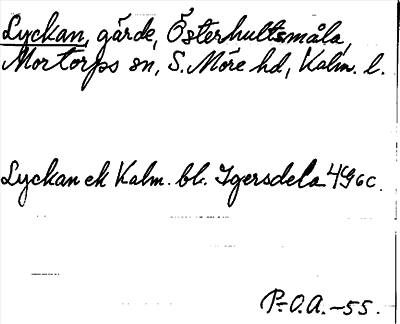 Lyckan, gärde, Österhultsmåla,
Mortorps sn, S. Möre hd, Kalm. l.
Lyckan ek Kalm. bl. Igersdela 4G6c.
P.-O.A.-55.